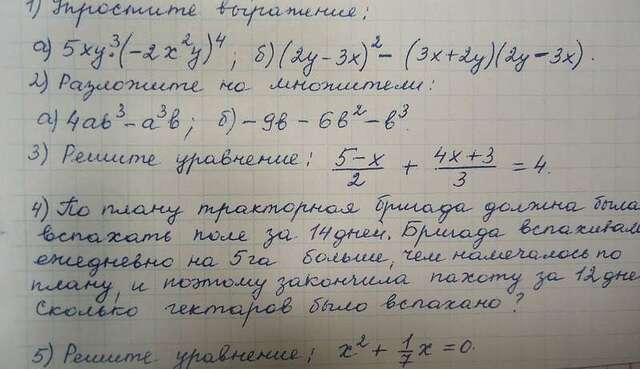 1) Упростите выражение:
а) 5xy³·(-2x²y)⁴; б) (2y-3x)² - (3x+2y)(2y-3x).
2) Разложите на множители:
а) 4ab³-a³b; б) -9b-6b²-b³.
3) Решите уравнение: (5-x)/2 + (4x+3)/3 = 4.
4) По плану тракторная бригада должна была
вспахать поле за 14 дней. Бригада вспахивала
ежедневно на 5га больше, чем намечалось по
плану, и поэтому закончила пахоту за 12 дне
Сколько гектаров было вспахано?
5) Решите уравнение: x² + 1/7 x = 0.